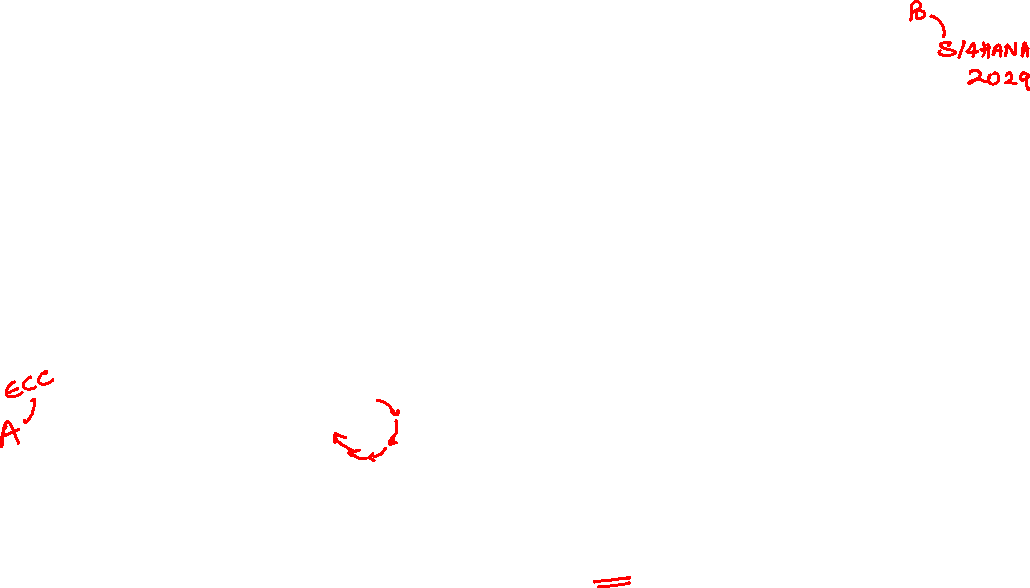 B
S/4HANA
2029
ECC
A